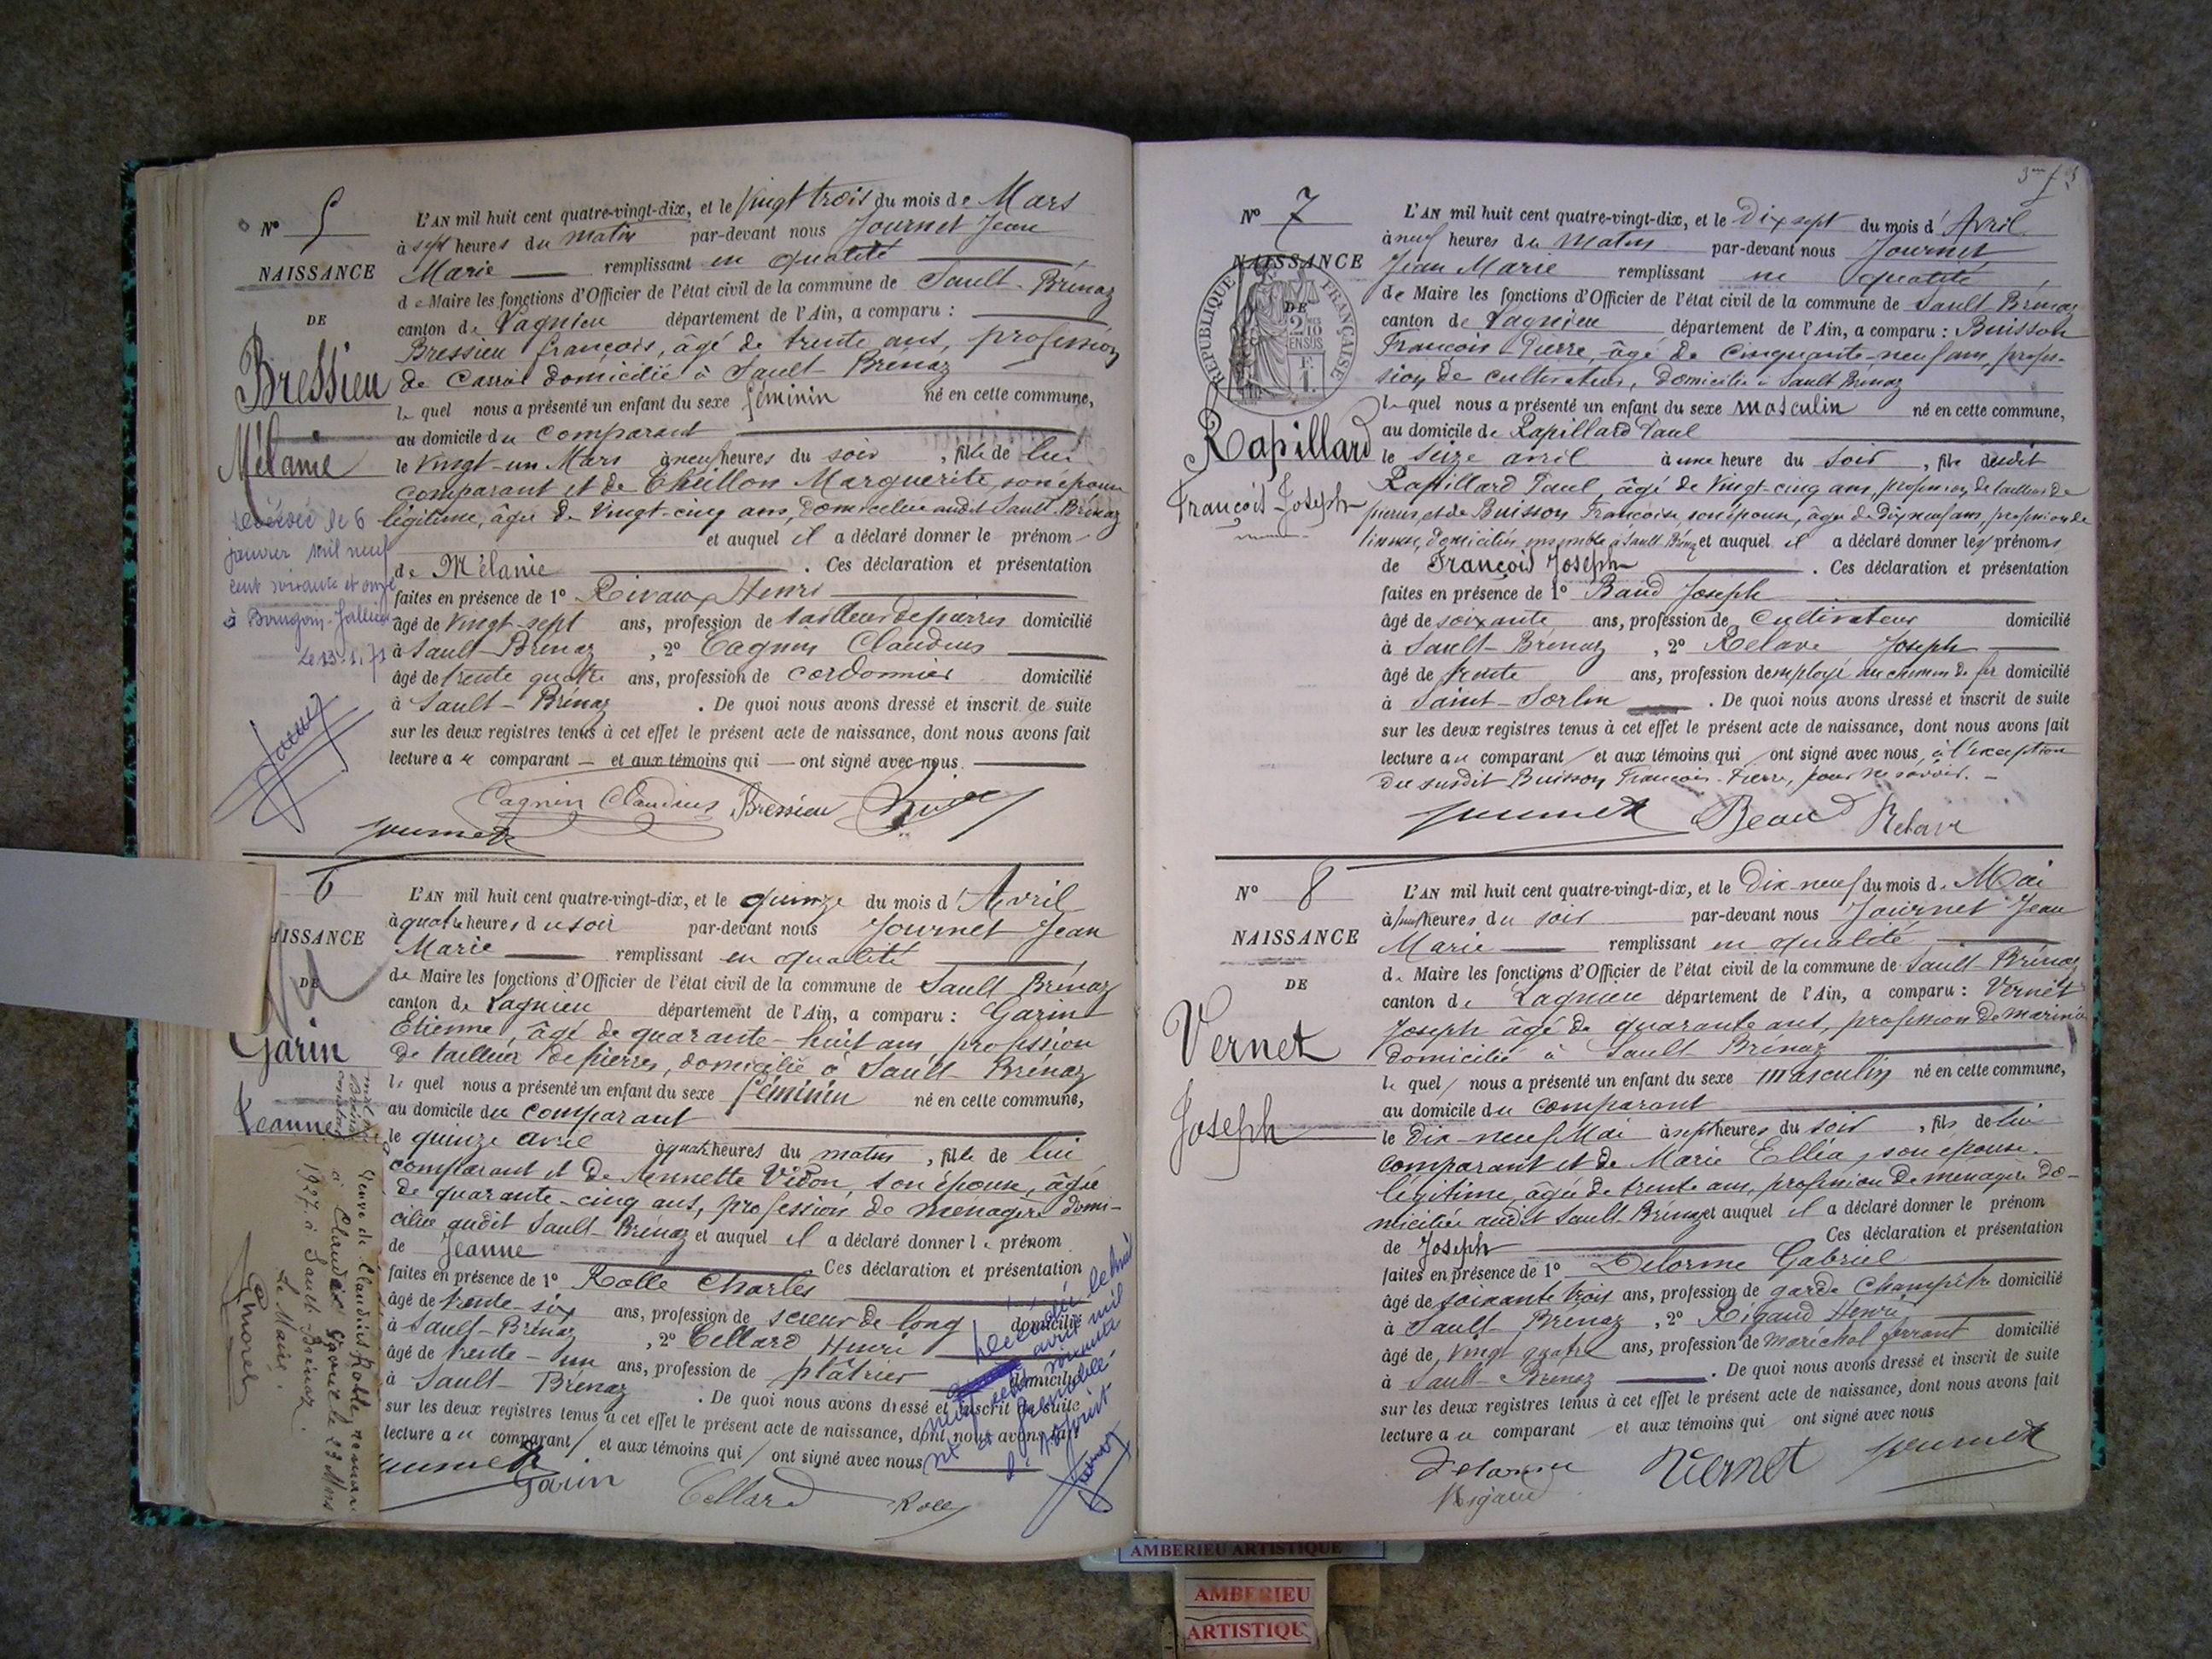 N° 5
NAISSANCE
DE
Bressieu
Mélanie
décédée le 6
janvier mil neuf
cent soixante et onze
à Bourgoin-Jallieu
Le 13.1.71
L'AN mil huit cent quatre-vingt-dix, et le Vingt trois du mois de Mars
à sept heures du matin par-devant nous Journet Jean
Marie remplissant en qualité
de Maire les fonctions d'Officier de l'état civil de la commune de Sault-Brénaz
canton de Lagnieu département de l'Ain, a comparu :
Bressieu françois, âgé de trente ans, profession
de domicilié à Sault-Brénaz
lequel nous a présenté un enfant du sexe féminin né en cette commune,
au domicile du comparant
le Vingt-un Mars à neuf heures du soir, fille de lui
comparant et de Marguerite, son épouse
légitime, âgée de Vingt-cinq ans, domiciliée audit Sault-Brénaz
et auquel il a déclaré donner le prénom
de Mélanie. Ces déclaration et présentation
faites en présence de 1° Rivaux Henri
âgé de Vingt-sept ans, profession de tailleur de pierres domicilié
à Sault-Brénaz, 2° Cagnin Claudius
âgé de trente quatre ans, profession de cordonnier domicilié
à Sault-Brénaz. De quoi nous avons dressé et inscrit de suite
sur les deux registres tenus à cet effet le présent acte de naissance, dont nous avons fait
lecture au comparant et aux témoins qui ont signé avec nous.
Cagnin Claudius Bressieu
Journet
6
AISSANCE
DE
Garin
Jeanne
Veuve de Claudius Rolle, remariée
à Claude le 23 Mars
1927 à Sault-Brénaz.
Le Maire
L'AN mil huit cent quatre-vingt-dix, et le quinze du mois d'Avril
à quatre heures du soir par-devant nous Journet Jean
Marie remplissant en qualité
de Maire les fonctions d'Officier de l'état civil de la commune de Sault Brénaz
canton de Lagnieu département de l'Ain, a comparu : Garin
Etienne, âgé de quarante-huit ans profession
de tailleur de pierres, domicilié à Sault-Brénaz
lequel nous a présenté un enfant du sexe féminin né en cette commune,
au domicile du comparant
le quinze avril à quatre heures du matin, fille de lui
comparant et de Annette Vidon, son épouse, âgée
de quarante-cinq ans, profession de ménagère domi-
ciliée audit Sault-Brénaz et auquel il a déclaré donner le prénom
de Jeanne Ces déclaration et présentation
faites en présence de 1° Rolle Charles
âgé de trente-six ans, profession de scieur de long domicilié
à Sault-Brénaz, 2° Cellard Henri
âgé de trente-un ans, profession de plâtrier domicilié
à Sault-Brénaz. De quoi nous avons dressé et inscrit de suite
sur les deux registres tenus à cet effet le présent acte de naissance, dont nous avons fait
lecture au comparant et aux témoins qui ont signé avec nous
Journet
Garin Cellard Rolle
Décédée le huit
avril mil
neuf cent soixante
Grenoble
N° 7
NAISSANCE
DE
RÉPUBLIQUE FRANÇAISE
2 MES 10 EN SUS
Rapillard
François-Joseph
L'AN mil huit cent quatre-vingt-dix, et le Dix sept du mois d'Avril
à neuf heures du Matin par-devant nous Journet
Jean Marie remplissant en qualité
de Maire les fonctions d'Officier de l'état civil de la commune de Sault Brénaz
canton de Lagnieu département de l'Ain, a comparu : Buisson
François Pierre, âgé de Cinquante-neuf ans, profes-
sion de cultivateur, domicilié à Sault Brénaz
lequel nous a présenté un enfant du sexe masculin né en cette commune,
au domicile de Rapillard Paul
le seize avril à une heure du soir, fils dudit
Rapillard Paul, âgé de Vingt-cinq ans, profession de tailleur de
pierres, et de Buisson Françoise, son épouse, âgée de Dix neuf ans, profession de
domiciliés ensemble à Sault-Brénaz et auquel il a déclaré donner les prénoms
de François Joseph. Ces déclaration et présentation
faites en présence de 1° Baud Joseph
âgé de soixante ans, profession de Cultivateur domicilié
à Sault-Brénaz, 2° Relave Joseph
âgé de trente ans, profession d'employé au chemin de fer domicilié
à Saint-Sorlin. De quoi nous avons dressé et inscrit de suite
sur les deux registres tenus à cet effet le présent acte de naissance, dont nous avons fait
lecture au comparant et aux témoins qui ont signé avec nous, à l'exception
du susdit Buisson François-Pierre, pour ne savoir.
Journet Beaud Relave
N° 8
NAISSANCE
DE
Vernet
Joseph
L'AN mil huit cent quatre-vingt-dix, et le Dix-neuf du mois de Mai
à heures du soir par-devant nous Journet Jean
Marie remplissant en qualité
de Maire les fonctions d'Officier de l'état civil de la commune de Sault-Brénaz
canton de Lagnieu département de l'Ain, a comparu : Vernet
Joseph âgé de quarante ans, profession de marinier
domicilié à Sault Brénaz
lequel nous a présenté un enfant du sexe masculin né en cette commune,
au domicile du comparant
le dix-neuf Mai à sept heures du soir, fils de lui
comparant et de Marie Ellia, son épouse
légitime, âgée de trente ans, profession de menagère do-
miciliée audit Sault-Brénaz et auquel il a déclaré donner le prénom
de Joseph Ces déclaration et présentation
faites en présence de 1° Delorme Gabriel
âgé de soixante trois ans, profession de garde Champêtre domicilié
à Sault-Brénaz, 2° Rigaud Henri
âgé de Vingt quatre ans, profession de marechal ferrant domicilié
à Sault-Brénaz. De quoi nous avons dressé et inscrit de suite
sur les deux registres tenus à cet effet le présent acte de naissance, dont nous avons fait
lecture au comparant et aux témoins qui ont signé avec nous
Delorme Vernet Journet
Rigaud
AMBERIEU ARTISTIQUE
AMBERIEU
ARTISTIQU